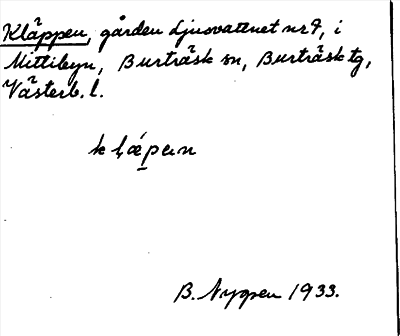 Kläppen, gården Ljusvattnet nr 9, i
Mittibyn, Burträsk sn, Burträsk tg,
Västerb. l.
B. Nygren 1933.